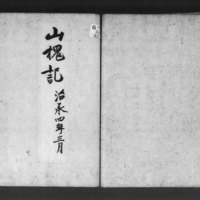 山槐記 治承四年三月